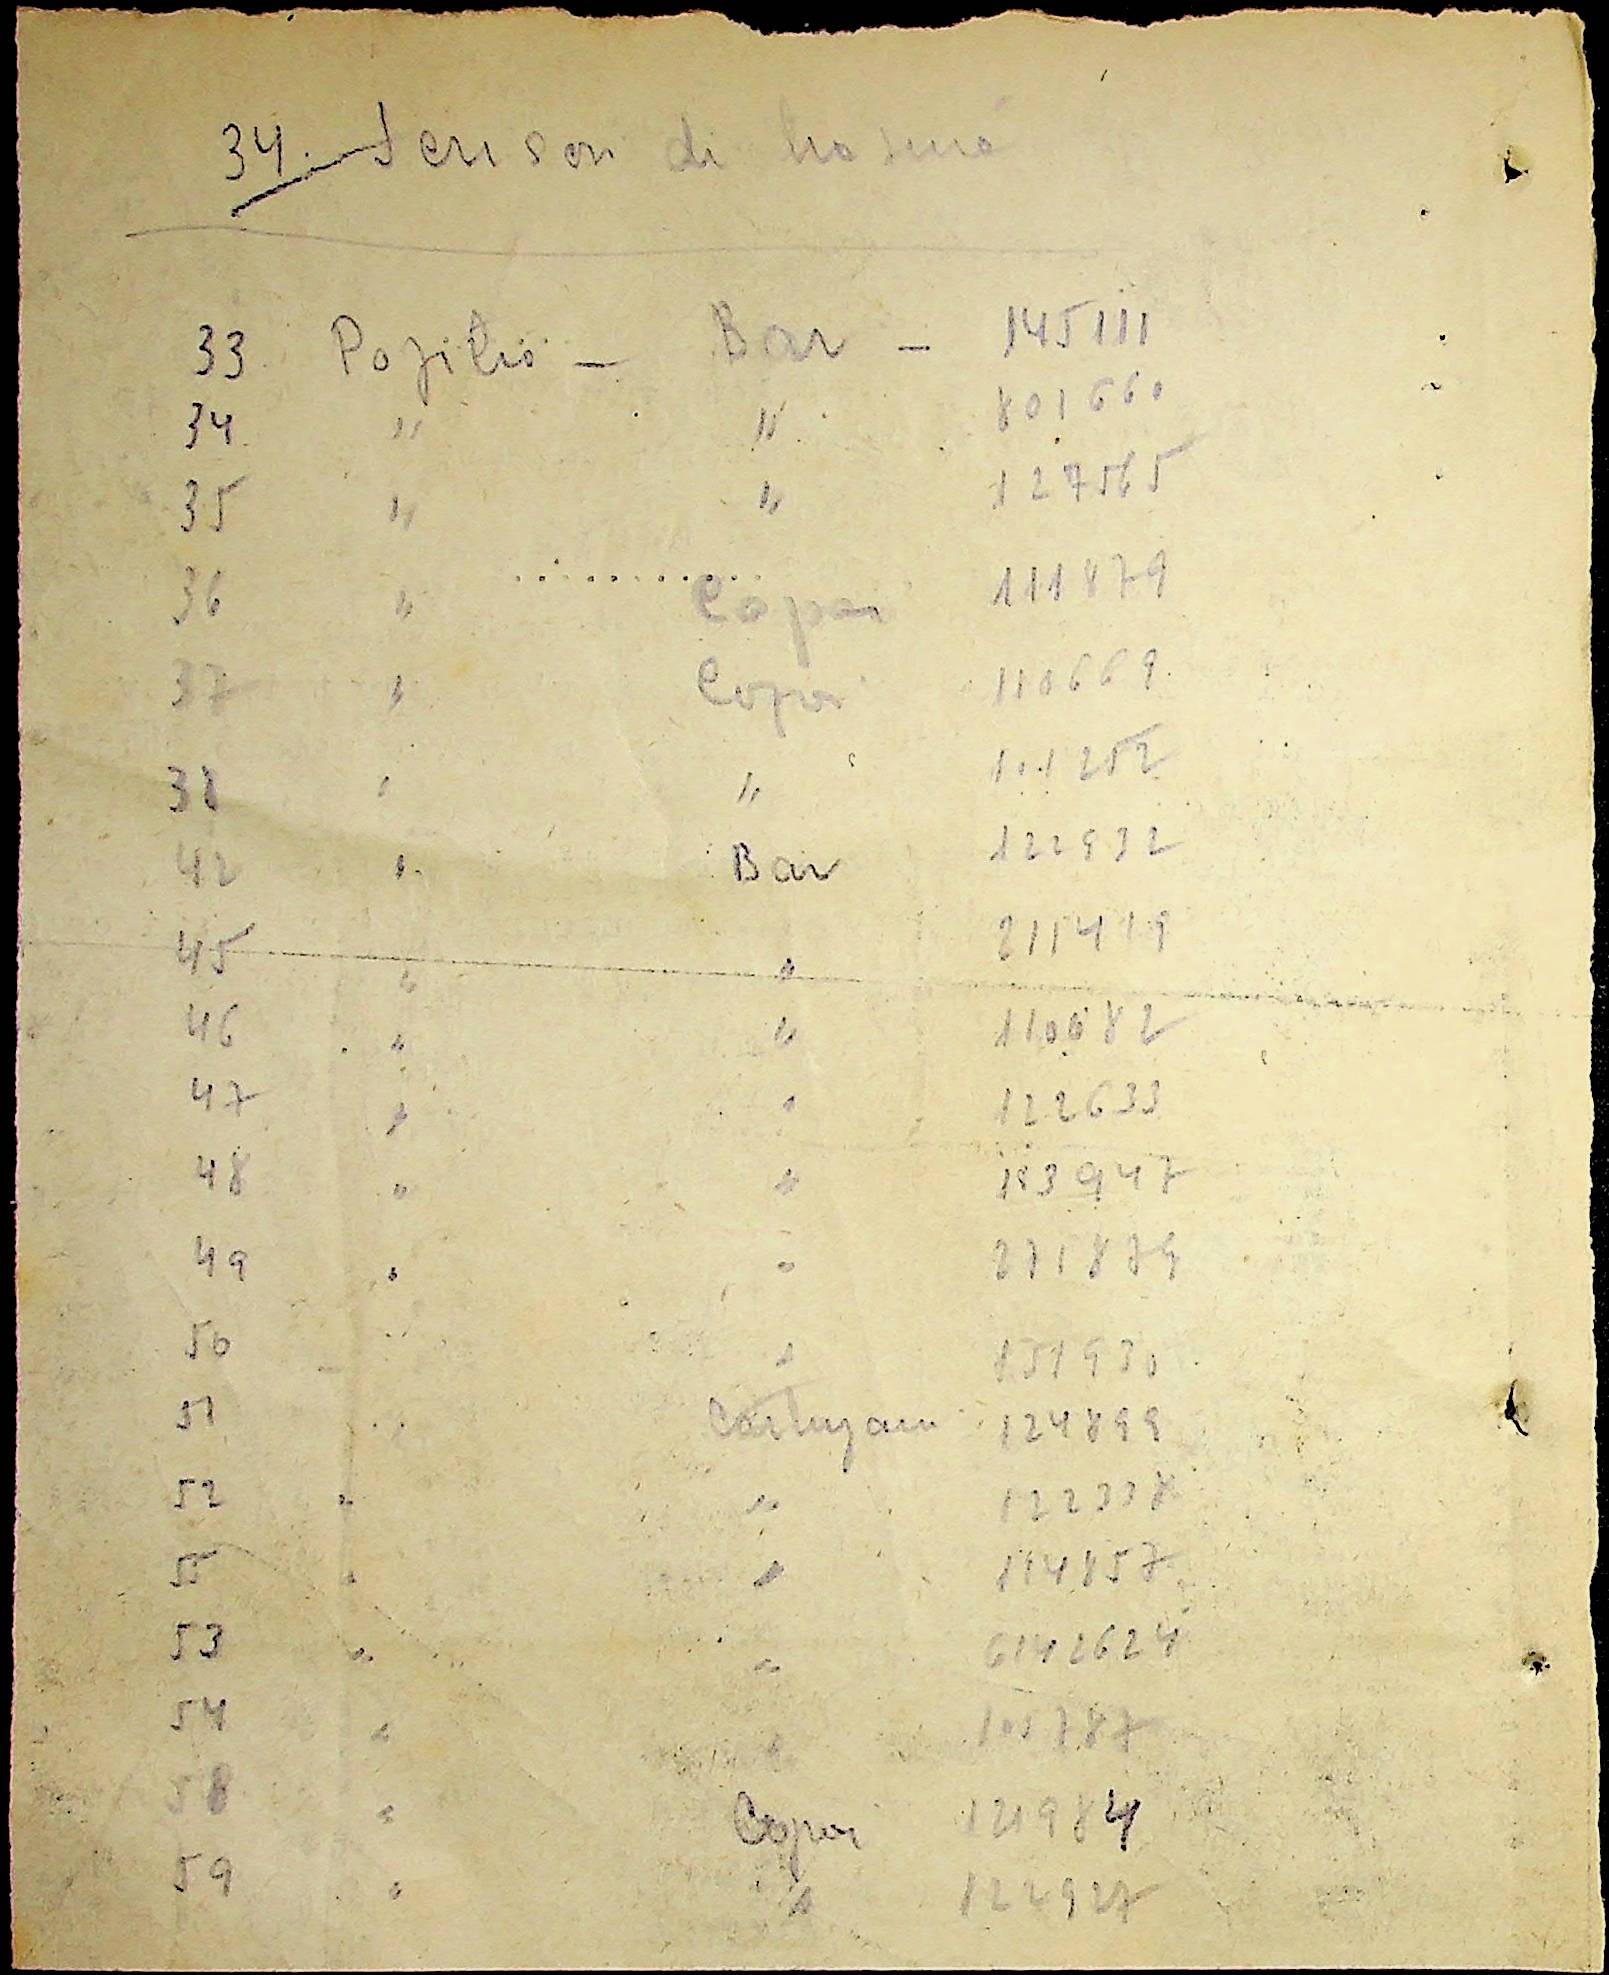 34. Scrisori di
33 Poziția – Bar – 145111
34 " " 801660
35 " " 127565
36 " Copai 111879
37 " Copai 110669
38 " " 101252
42 " Bar 122932
45 " " 211419
46 " " 110682
47 " " 122633
48 " " 183947
49 " " 271879
50 " 151930
51 " 124899
52 " " 122338
52 " " 114857
53 " " 6142624
54 " " 105787
58 " Copai 121984
59 " " 122927